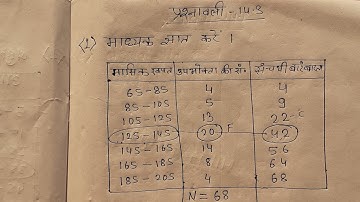 प्रश्नावली - 14.3
(1) माध्यक ज्ञात करें ।
मासिक खपत उपभोक्ता की सं. संचयी बारंबारता
65 - 85 4 4
85 - 105 5 9
105 - 125 13 22 - C
125 - 145 20 F 42
145 - 165 14 56
165 - 185 8 64
185 - 205 4 68
N = 68